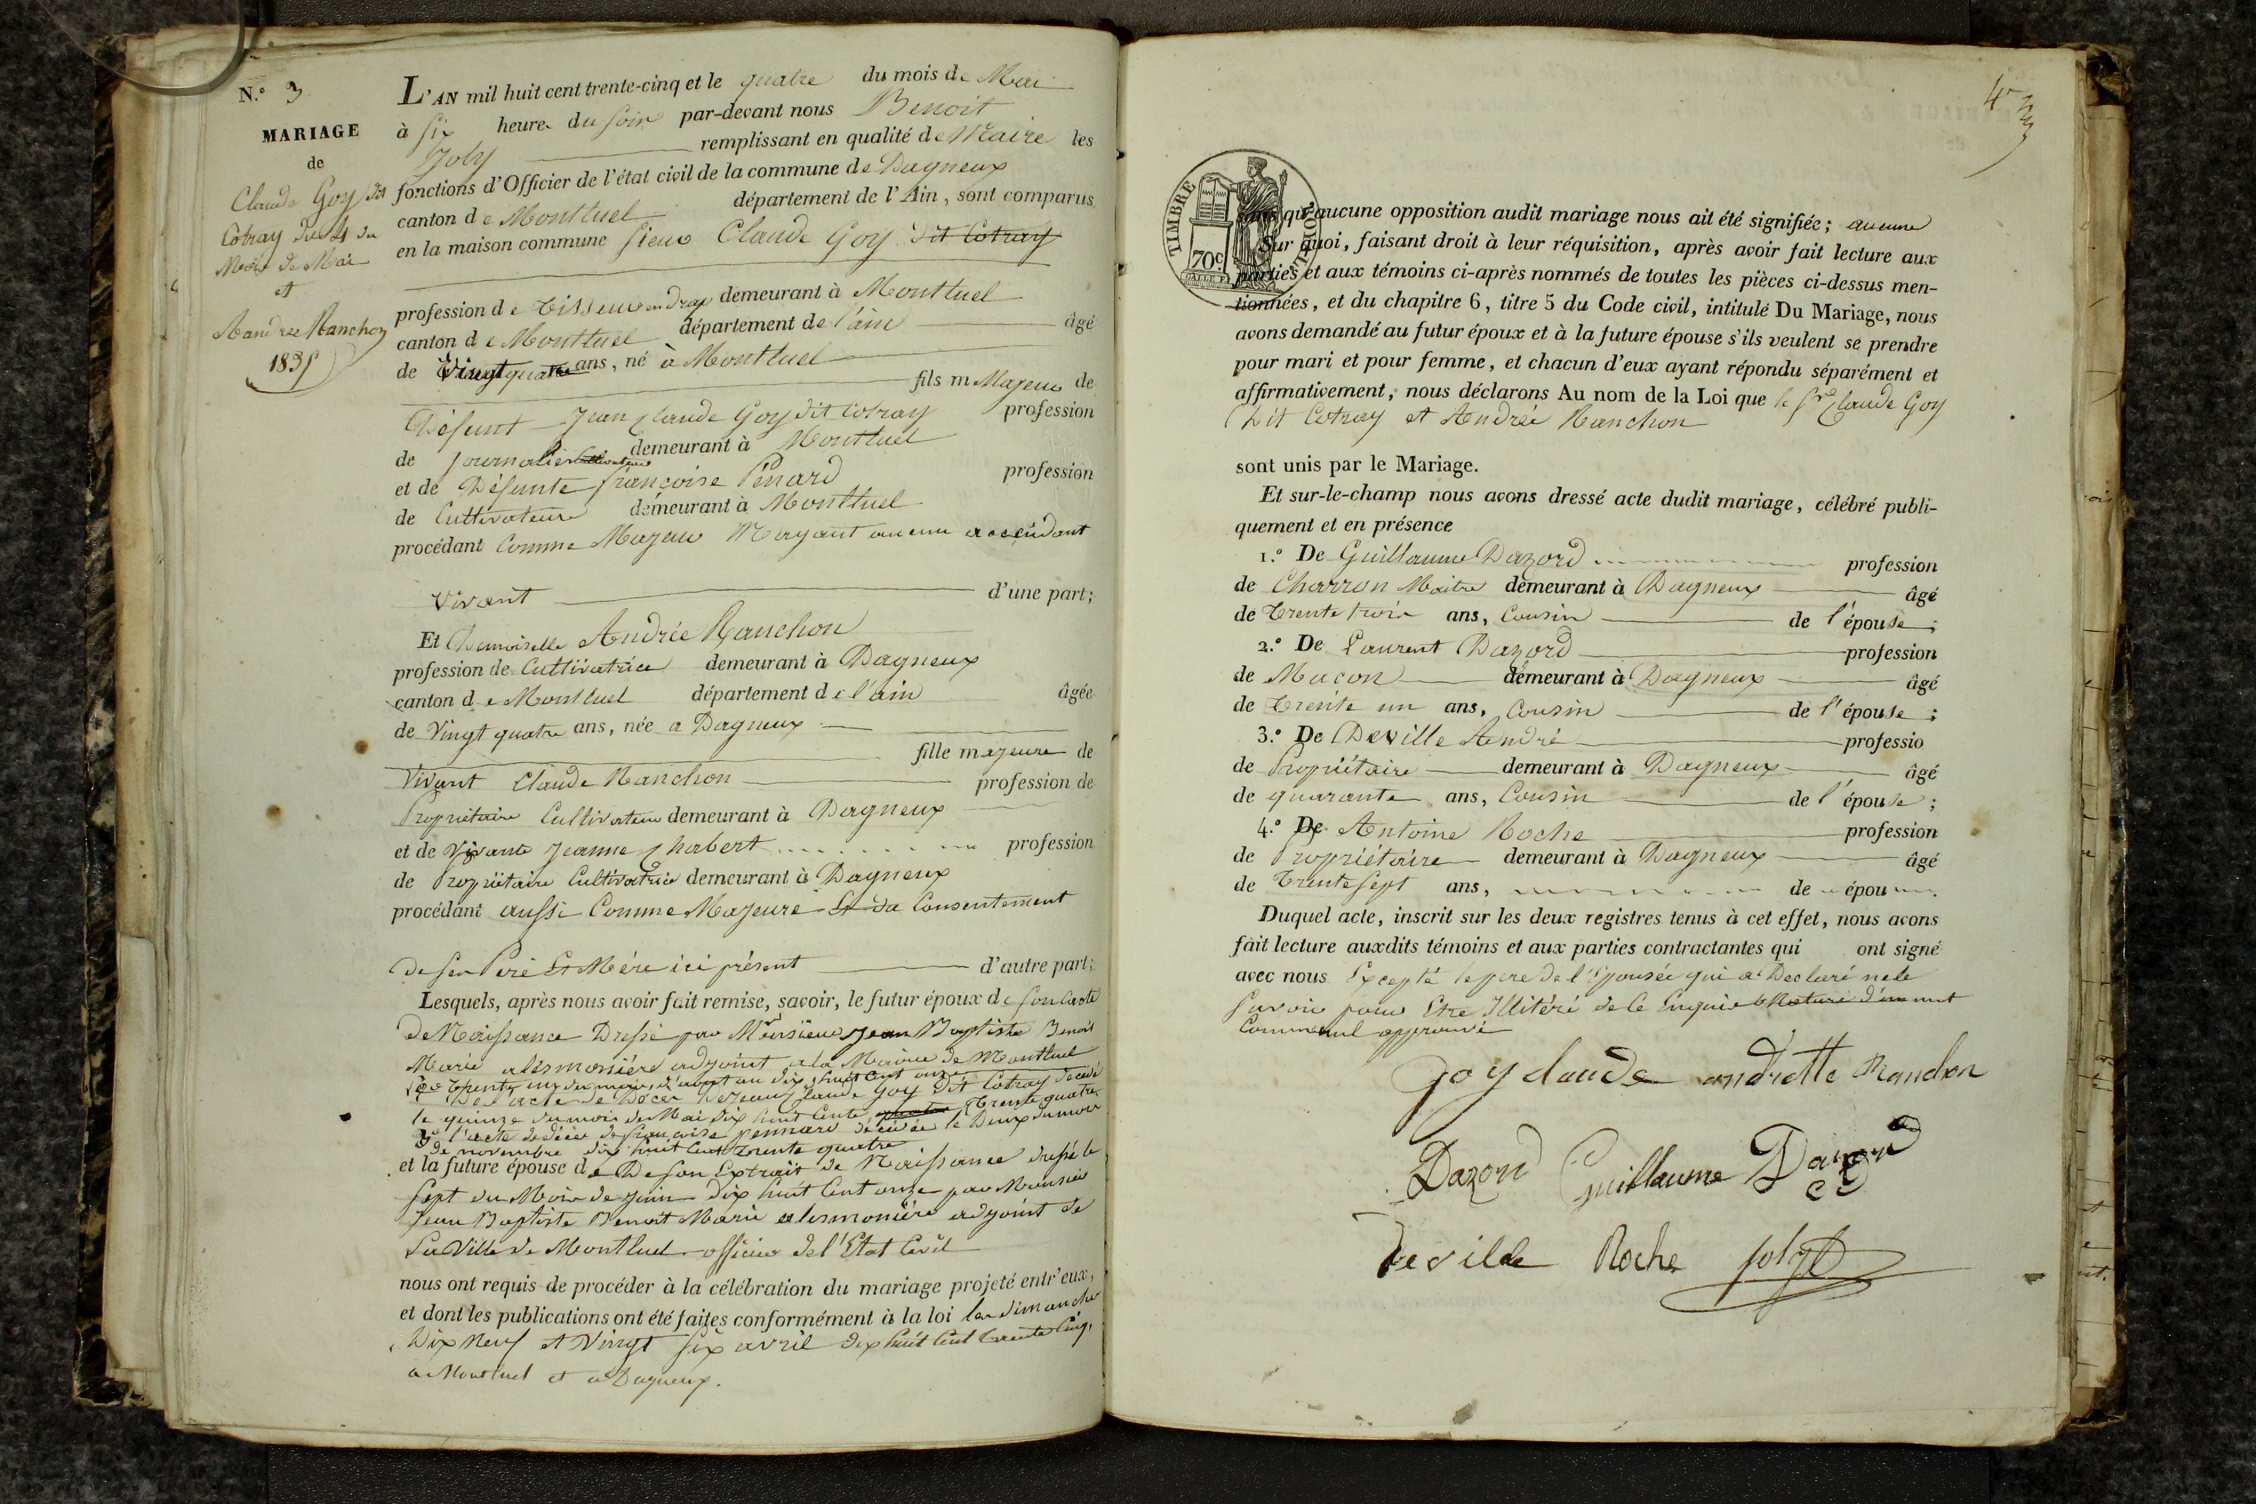 N.º 3
MARIAGE
de
Claude Goy dit
Cotray du 4 du
Mois de Mai
et
Andrée Ranchon
1835
L'AN mil huit cent trente-cinq et le quatre du mois de Mai
à six heure du soir par-devant nous Benoit
Joly remplissant en qualité de Maire les
fonctions d'Officier de l'état civil de la commune de Dagneux
canton de Montluel département de l'Ain, sont comparus
en la maison commune sieur Claude Goy dit Cotray
profession de Tisseur en drap demeurant à Montluel
canton de Montluel département de l'ain âgé
de Vingt quatre ans, né à Montluel
fils m Majeur de
Défunt Jean Claude Goy dit Cotray profession
de journalier demeurant à Montluel
et de Défunte françoise Pénard profession
de Cultivateure demeurant à Montluel
procédant Comme Majeur N'ayant aucun ascendant
Vivant d'une part;
Et Demoiselle Andrée Ranchon
profession de Cultivatrice demeurant à Dagneux
canton de Montluel département de l'ain âgée
de Vingt quatre ans, née a Dagneux
fille majeure de
Vivant Claude Ranchon profession de
Propriétaire Cultivateur demeurant à Dagneux
et de Vivante Jeanne Chabert profession
de Propriétaire Cultivatrice demeurant à Dagneux
procédant aussi Comme Majeure Et du Consentement
de son Père Et Mère ici présent d'autre part;
Lesquels, après nous avoir fait remise, savoir, le futur époux de son acte
de Naissance Dressé par Monsieur Jean Baptiste Benoit
Marie alesmonière adjoint a la Mairie de Montluel
dix huit cent onze
De l'acte de Décer de Jean Claude Goy dit Cotray décédé
le quinze du mois de Mai dix huit Cents Trente quatre
3º l'acte de décée de françoise pennard décédée le Deux du mois
de novembre dix huit Cent Trente quatre
et la future épouse de De son Extrait de Naissance dressé le
sept du Mois de juin dix huit Cent onze par Monsieur
Jean Baptiste Benoit Marie alesmonière adjoint de
La Ville de Montluel officier de l'Etat Civil
nous ont requis de procéder à la célébration du mariage projeté entr'eux,
et dont les publications ont été faites conformément à la loi les dimanche
Dix Neuf et Vingt six avril dix huit Cent trente Cinq,
a Montluel et a Dagneux.
4
3
TIMBRE ROYAL
70c
sans qu'aucune opposition audit mariage nous ait été signifiée; aucune
Sur quoi, faisant droit à leur réquisition, après avoir fait lecture aux
parties et aux témoins ci-après nommés de toutes les pièces ci-dessus men-
tionnées, et du chapitre 6, titre 5 du Code civil, intitulé Du Mariage, nous
avons demandé au futur époux et à la future épouse s'ils veulent se prendre
pour mari et pour femme, et chacun d'eux ayant répondu séparément et
affirmativement, nous déclarons Au nom de la Loi que le Sr Claude Goy
Dit Cotray et Andrée Ranchon
sont unis par le Mariage.
Et sur-le-champ nous avons dressé acte dudit mariage, célébré publi-
quement et en présence
1.º De Guillaume Dazord profession
de Charron Maitre demeurant à Dagneux âgé
de Trente trois ans, Cousin de l'épouse;
2.º De Laurent Dazord profession
de Macon demeurant à Dagneux âgé
de Trente un ans, Cousin de l'épouse;
3.º De Deville André professio
de Propriétaire demeurant à Dagneux âgé
de quarante ans, Cousin de l'épouse;
4.º De Antoine Roche profession
de Propriétaire demeurant à Dagneux âgé
de Trente sept ans, de épou
Duquel acte, inscrit sur les deux registres tenus à cet effet, nous avons
fait lecture auxdits témoins et aux parties contractantes qui ont signé
avec nous Excepté le pere de l'Epousée qui a Declaré ne le
savoir pour Etre Illitéré de Ce Enquis
approuvé
Goy claude andrette Ranchon
Dazord Guillaume Dazord
deville Roche Joly